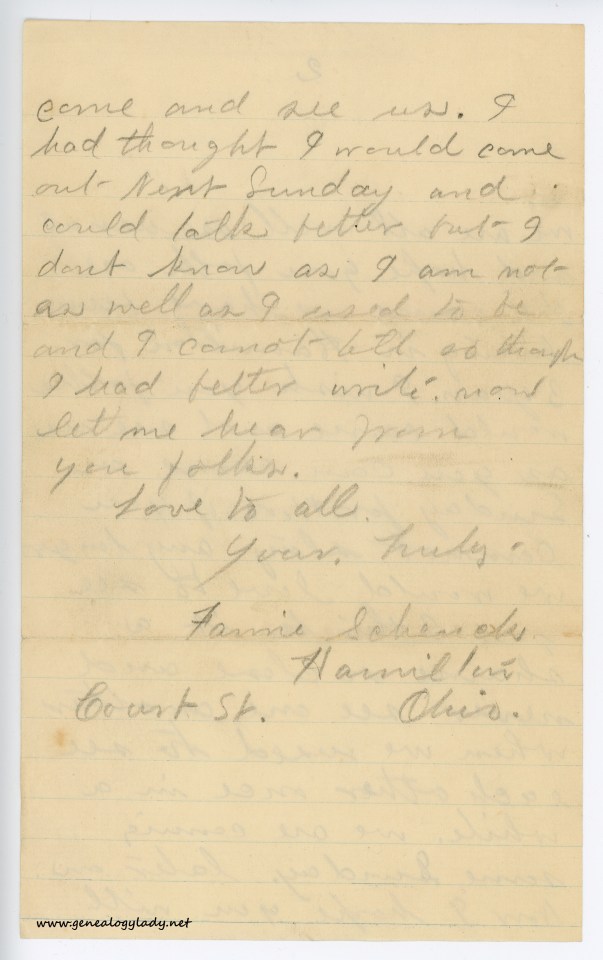 come and see us. I
had thought I would come
out Next Sunday and
could talk better but I
dont know as I am not
as well as I used to be
and I cannot tell so though
I had better write. now
let me hear from
you folks.
Love to all.
Your. truly.
Fannie Schenck
Hamilton
Court St. Ohio.
www.genealogylady.net